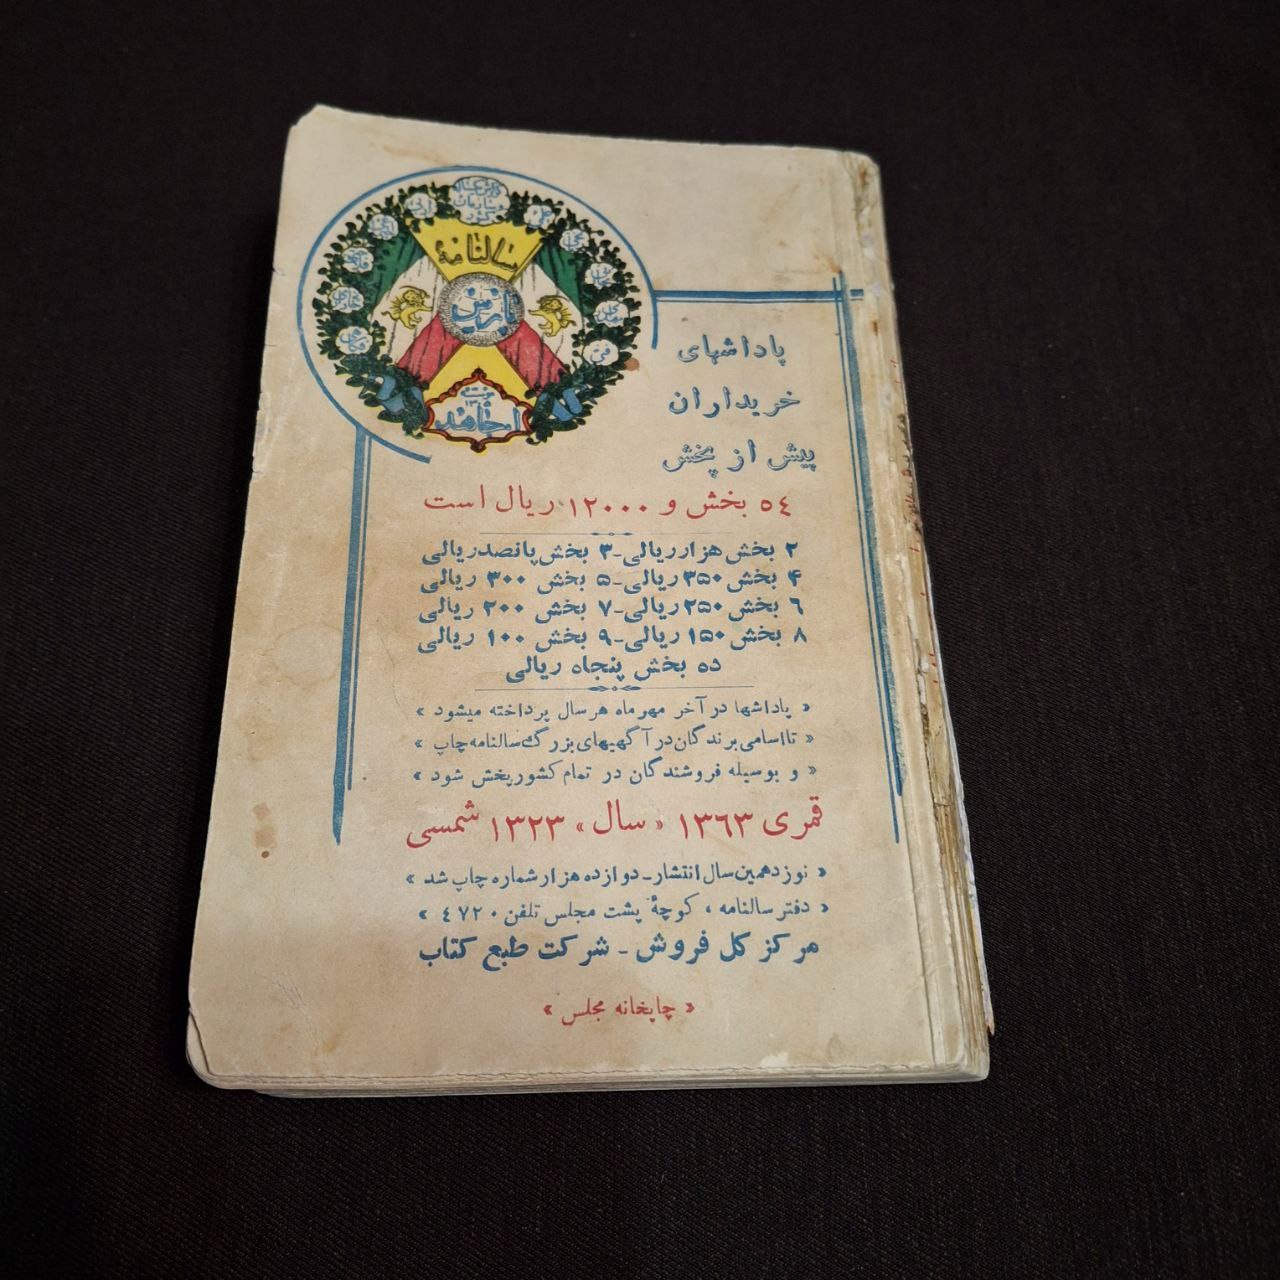 سالنامهٔ
پارس
پاداشهای
خریداران
پیش از پخش
٥٤ بخش و ۱۲۰۰۰ ریال است
۲ بخش هزار ریالی-۳ بخش پانصد ریالی
۴ بخش ۳۵۰ ریالی-۵ بخش ۳۰۰ ریالی
۶ بخش ۲۵۰ ریالی-۷ بخش ۲۰۰ ریالی
۸ بخش ۱۵۰ ریالی-۹ بخش ۱۰۰ ریالی
ده بخش پنجاه ریالی
« پاداشها در آخر مهر ماه هر سال پرداخته میشود »
« تا اسامی برندگان در آگهیهای بزرگ سالنامه چاپ »
« و بوسیله فروشندگان در تمام کشور پخش شود »
قمری ۱۳۶۳ « سال » ۱۳۲۳ شمسی
« نوزدهمین سال انتشار - دوازده هزار شماره چاپ شد »
« دفتر سالنامه ، کوچهٔ پشت مجلس تلفن ٤٧٢٠ »
مرکز کل فروش - شرکت طبع کتاب
« چاپخانه مجلس »